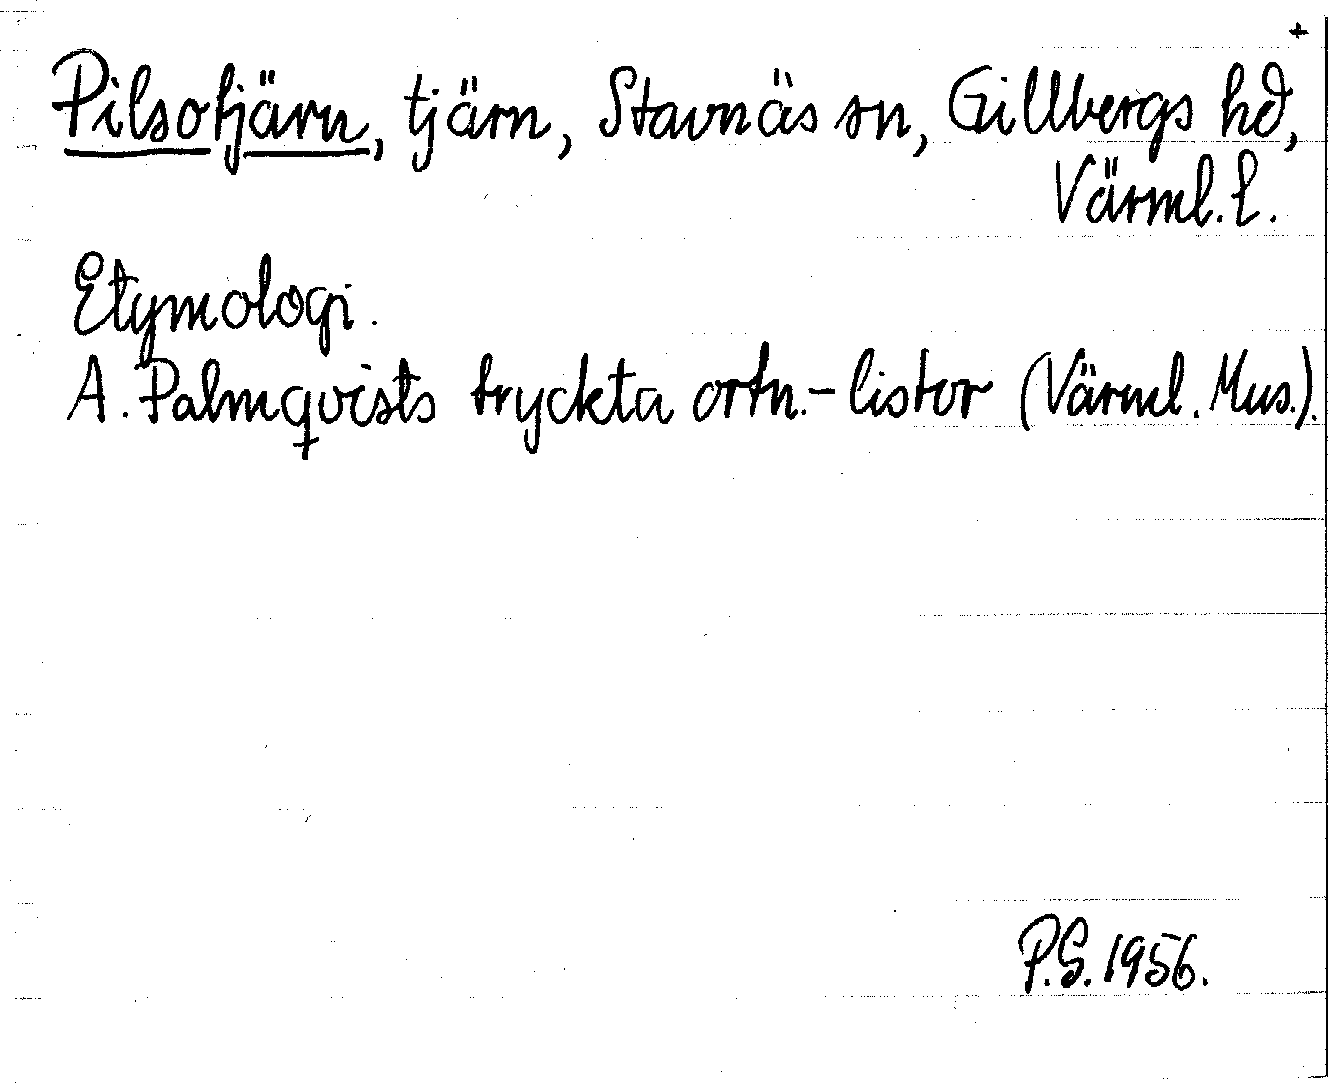 +
Pilsotjärn, tjärn, Stavnäs sn, Gillbergs hd,
Värml. l.
Etymologi.
A. Palmqvists tryckta ortn.-listor (Värml. Mus.).
P.S. 1956.